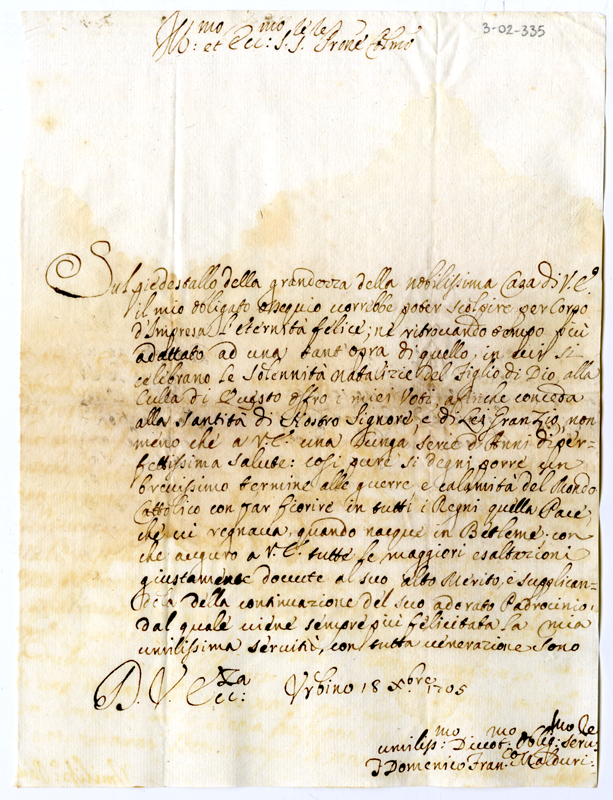 3-02-335
Ill:mo et Ecc:mo S.re S.re Prone Colmo
Sul piedestallo della grandezza della nobilissima Casa di V.E.
il mio obligato ossequio vorrebbe poter scolpire per Corpo
d'Impresa l'eternità felice; nè ritrouando tempo più
adattato ad una tant'opra di quello, in cui si
celibrano le Solennità natalizie del Figlio di Dio, alla
Culla di Questo offro i miei Voti, affinche conceda
alla Santità di Nostro Signore, e di Lei Gran Zio, non
meno che a V.E. una lunga serie d'Anni di per-
fettissima salute: così pure si degni porre un
breuissimo termine alle guerre e calamità del Mondo
Cattolico con far fiorire in tutti i Regni quella Pace
che ui regnaua, quando nacque in Betleme. con
che auguro a V.E. tutte le maggiori esaltazioni
giustamente douute al suo alto Merito, e supplican=
dola della continuazione del suo adorato Padrocinio,
dal quale uiene sempre più felicitata la mia
umilissima seruitù, con tutta uenerazione sono
D. V. Ecc:za Vrbino 18 Xbre 1705
umiliss:mo Diuot:mo Oblig:mo Seru:re
Domenico Fran:co Malduri